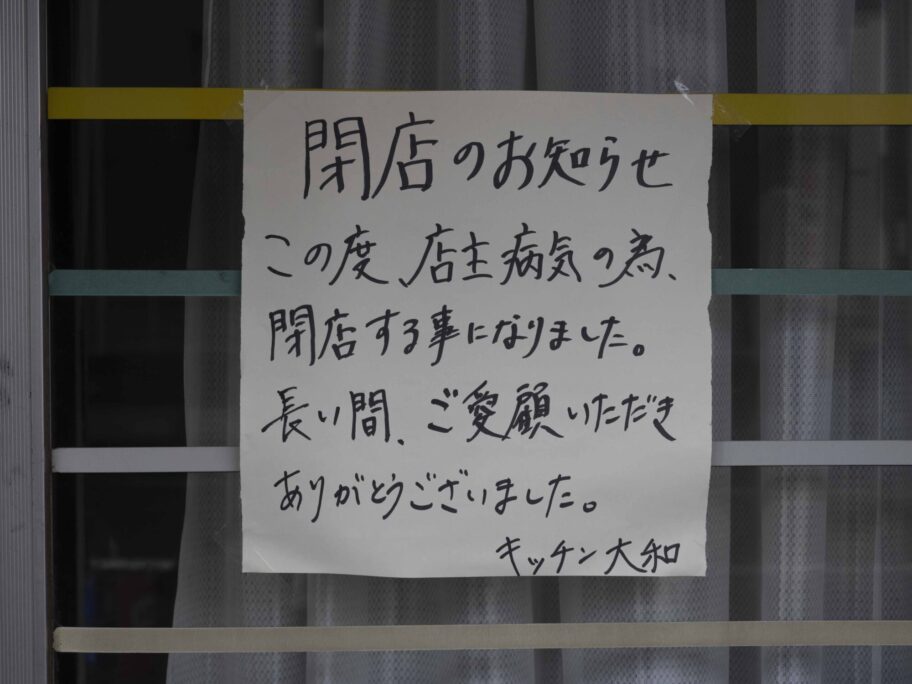 閉店のお知らせ
この度、店主病気の為、
閉店する事になりました。
長い間、ご愛顧いただき
ありがとうございました。
キッチン大和